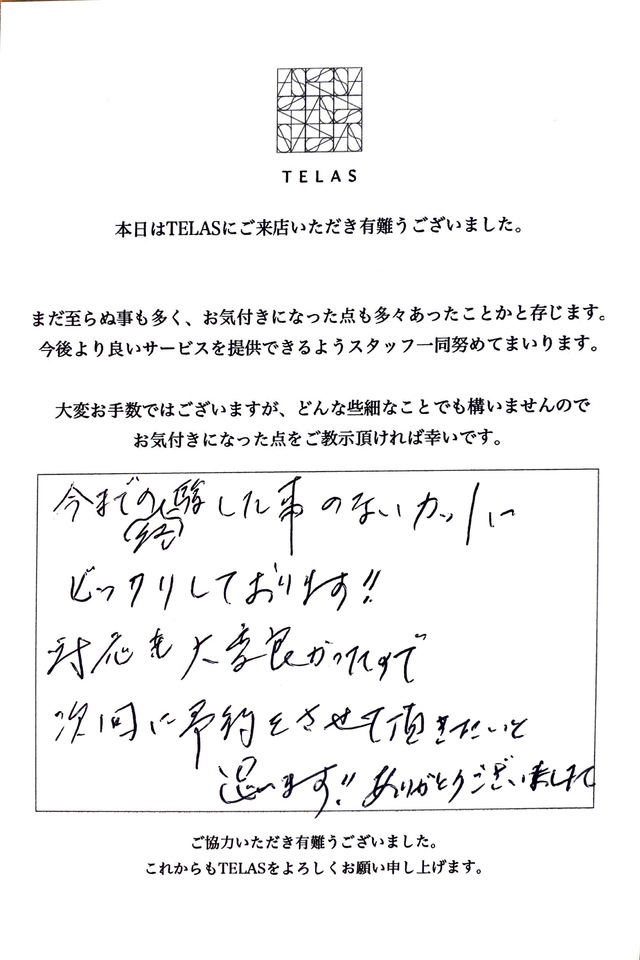 TELAS
本日はTELASにご来店いただき有難うございました。
まだ至らぬ事も多く、お気付きになった点も多々あったことかと存じます。
今後より良いサービスを提供できるようスタッフ一同努めてまいります。
大変お手数ではございますが、どんな些細なことでも構いませんので
お気付きになった点をご教示頂ければ幸いです。
今までの経験した事のないカットに
ビックリしております!!
対応も大変良かったので
次回に予約をさせて頂きたいと
思います!! ありがとうございました
ご協力いただき有難うございました。
これからもTELASをよろしくお願い申し上げます。